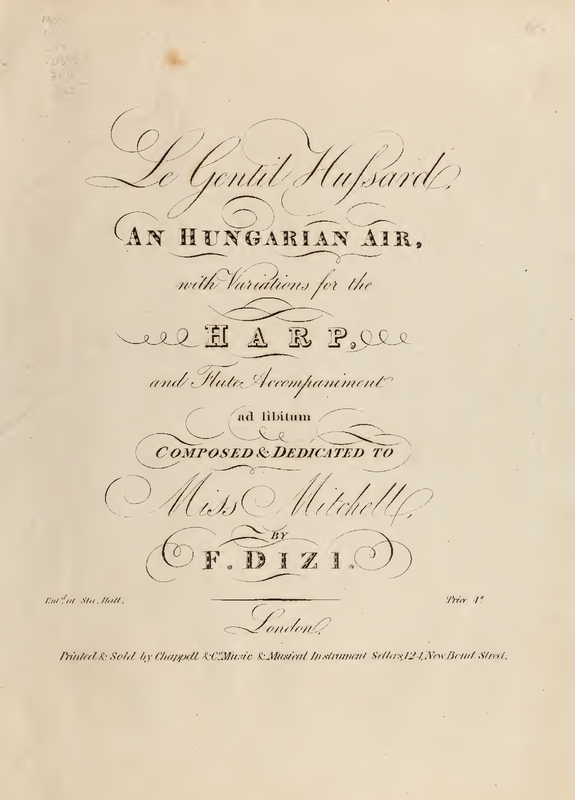 Le Gentil Hussard,
AN HUNGARIAN AIR,
with Variations for the
HARP,
and Flute Accompaniment
ad libitum
COMPOSED & DEDICATED TO
Miss Mitchell,
BY
F. DIZI.
Ent.d at Sta. Hall. Price 4s
London.
Printed & Sold by Chappell & Co. Music & Musical Instrument Sellers, 124, New Bond Street.